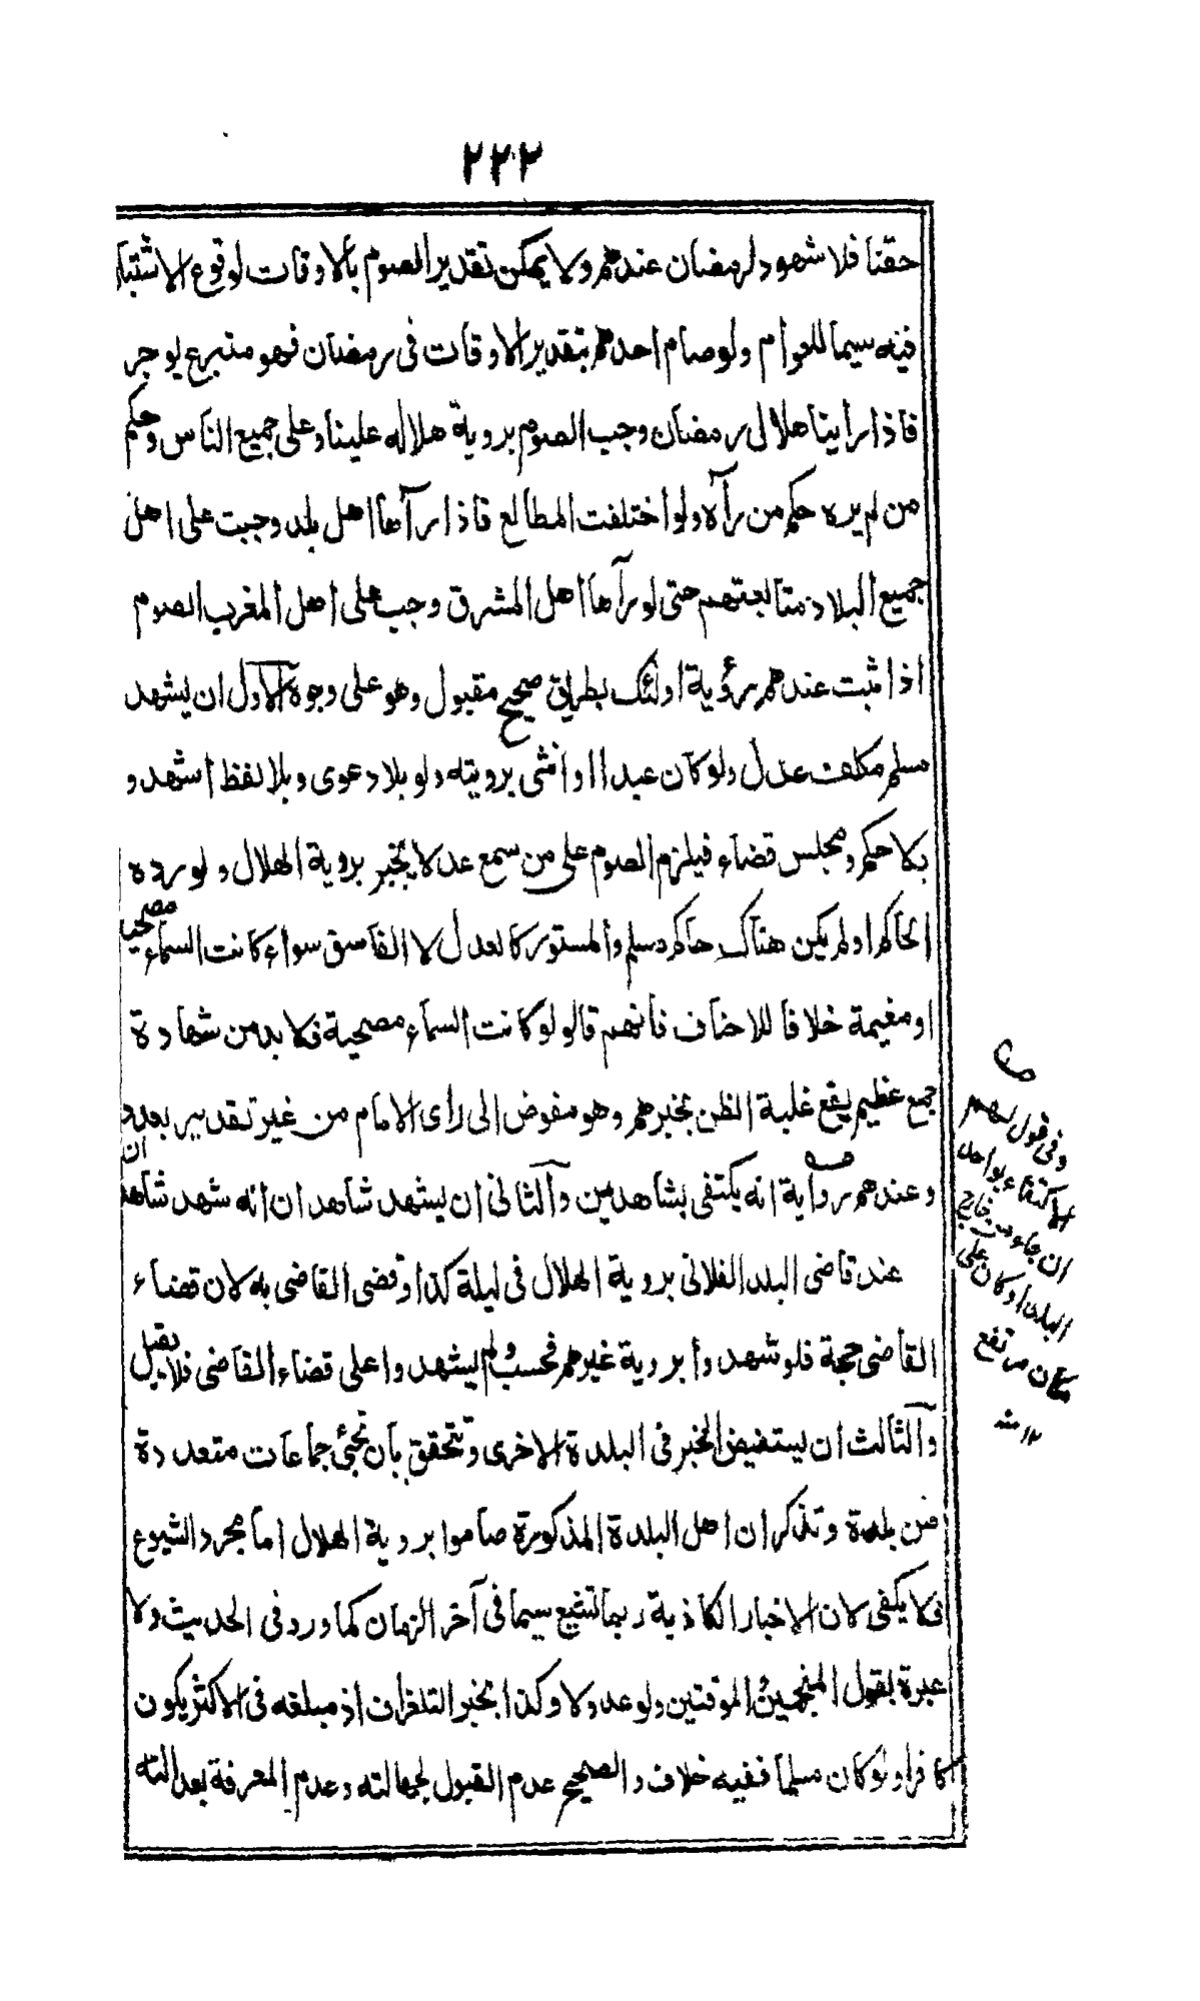 ٢٢٢
حقنا فلا شهود لرمضان عندهم ولا يمكن تقدير الصوم بالاوقات لوقوع الاشتباه
فيه سيما للعوام ولو صام احدهم بتقدير الاوقات فى رمضان فهو متبرع يوجر
فاذا رأينا هلال رمضان وجب الصوم بروية هلاله علينا وعلى جميع الناس وحكم
من لم يره حكم من رآه ولو اختلفت المطالع فاذا رآها اهل بلد وجبت على اهل
جميع البلاد متابعتهم حتى لو رآها اهل المشرق وجب على اهل المغرب الصوم
اذا ثبت عندهم رؤية اولئك بطريق صحيح مقبول وهو على وجوه الاول ان يشهد
مسلم مكلف عدل ولو كان عبدا او انثى برويته ولو بلا دعوى وبلا لفظ اشهد و
بلا حكم ومجلس قضاء فيلزم الصوم على من سمع عدلا يخبر بروية الهلال ولو رده
الحاكم او لم يكن هناك حاكم مسلم والمستور كالعدل لا الفاسق سواء كانت السماء مصحية
او مغيمة خلافا للاحناف فانهم قالو لو كانت السماء مصحية فلا بد من شهادة
جمع عظيم يقع غلبة الظن بخبرهم وهو مفوض الى رأى الامام من غير تقدير بعدد
وعندهم رواية انه يكتفى بشاهدين والثانى ان يشهد شاهدان انه شهد شاهدان
عند قاضى البلد الفلانى بروية الهلال فى ليلة كذا وقضى القاضى به لان قضاء
القاضى حجة فلو شهدوا بروية غيرهم فحسب ولم يشهدوا على قضاء القاضى فلا يقبل
والثالث ان يستفيض الخبر فى البلدة الاخرى وتتحقق بان تجئ جماعات متعددة
من بلدة وتذكر ان اهل البلدة المذكورة صاموا بروية الهلال اما مجرد الشيوع
فلا يكفى لان الاخبار الكاذبة ربما تشيع سيما فى آخر الزمان كما ورد فى الحديث ولا
عبرة بقول المنجمين الموقتين ولو عدولا وكذا بخبر التلغراف اذ مبلغه فى الاكثر يكون
كافرا ولو كان مسلما ففيه خلاف والصحيح عدم القبول لجهالته وعدم المعرفة بعدالته
وفى قول لهم
الاكتفاء بواحد
ان جاء من خارج
البلد او كان على
مكان مرتفع
١٢ منه